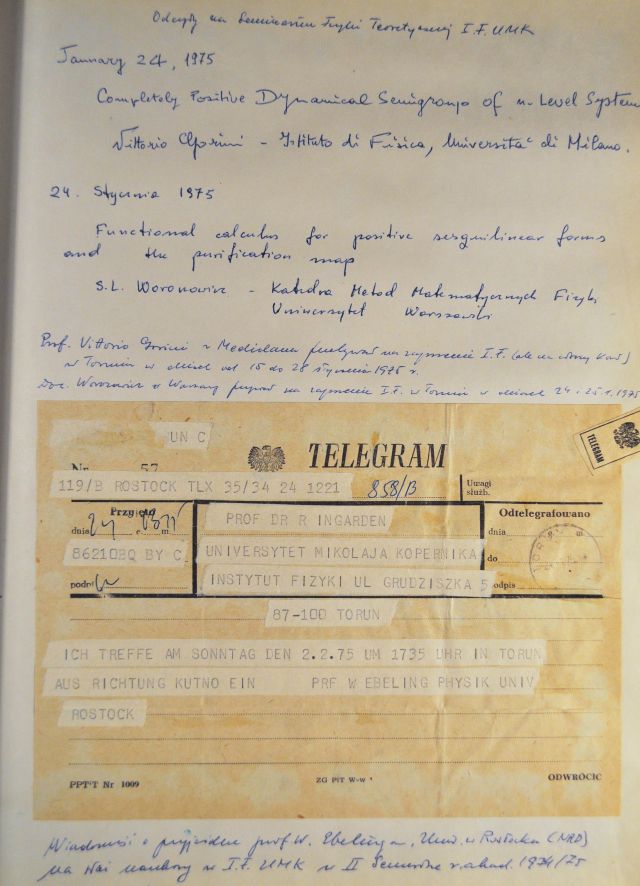 Odczyty na Seminarium Fizyki Teoretycznej I.F. UMK
January 24, 1975
Completely Positive Dynamical Semigroups of n-Level System
Vittorio Gorini - Istituto di Fisica, Università di Milano.
24. Stycznia 1975
Functional calculus for positive sesquilinear forms
and the purification map
S.L. Woronowicz - Katedra Metod Matematycznych Fizyki
Uniwersytet Warszawski
Prof. Vittorio Gorini z Mediolanu przebywał na zaproszenie I.F. (ale na własny koszt)
w Toruniu w dniach od 15 do 28 stycznia 1975 r.
Doc. Woronowicz z Warszawy przybył na zaproszenie I.F. w Toruniu w dniach 24 i 25.1.1975
UN C
TELEGRAM
TELEGRAM
Nr 57
119/B ROSTOCK TLX 35/34 24 1221 858/B
Uwagi
służb.
Przyjęto
Odtelegrafowano
dnia 24
PROF DR R INGARDEN
dnia m
86210BQ BY C
UNIVERSYTET MIKOLAJA KOPERNIKA
do
podpis
INSTYTUT FIZYKI UL GRUDZISZKA 5
odpis
87-100 TORUN
ICH TREFFE AM SONNTAG DEN 2.2.75 UM 1735 UHR IN TORUN
AUS RICHTUNG KUTNO EIN PRF W EBELING PHYSIK UNIV
ROSTOCK
PPTiT Nr 1009
ZG PiT W-w
ODWRÓCIC
Wiadomość o przyjeździe prof. W. Ebelinga, Uniw. w Rostocku (NRD)
na staż naukowy w I.F. UMK w II Semestrze r. akad. 1974/75